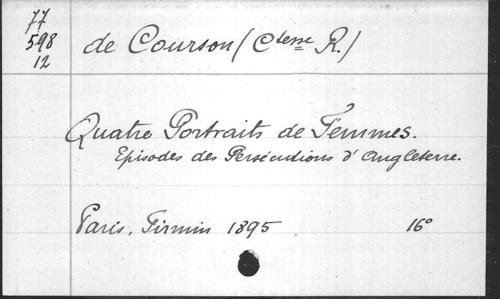 77
598
12
de Courson (Ctesse R.)
Quatre Portraits de Femmes.
Episodes des Persécutions d'Angleterre.
Paris, Firmin 1895 16°